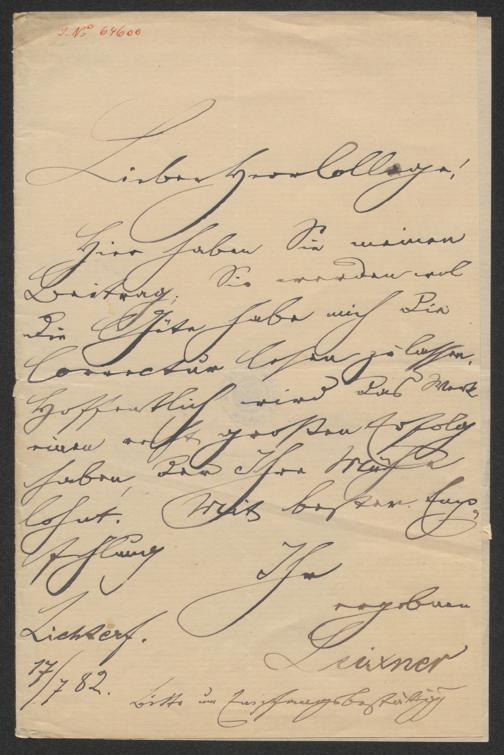 J. No 64600
Lieber Herr College!
Hier haben Sie meinen
Beitrag; Sie werden wol
die Güte haben mich die
Correctur lesen zu lassen.
Hoffentlich wird das Werk
einen recht großen Erfolg
haben, der Ihre Mühe
lohnt. Mit bester Emp-
fehlung
Ihr
ergebner
Leixner
Lichterf.
17/7 82.
Bitte um Empfangsbestätig